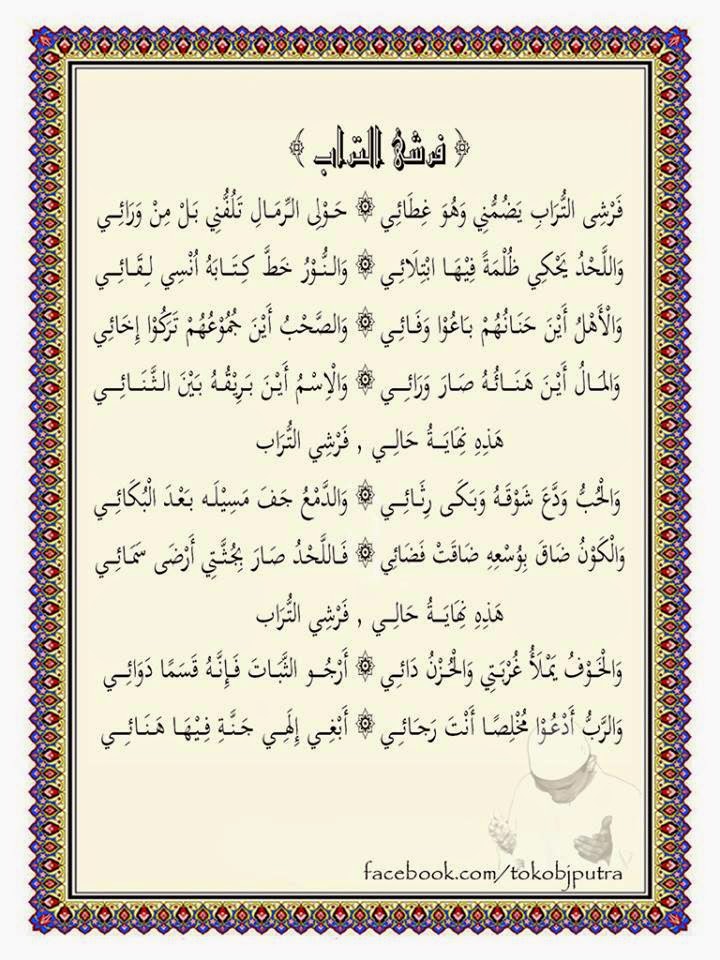 ﴿ فرشي التراب ﴾
فَرْشِى التُّرَابِ يَضُمُّنِي وَهُوَ غِطَائِي ۞ حَوْلِى الرِّمَالِ تَلُفُّنِي بَلْ مِنْ وَرَائِي
وَاللَّحْدُ يَحْكِي ظُلْمَةً فِيْهَا ابْتِلَائِي ۞ وَالنُّوْرُ خَطَّ كِتَابَهُ أُنْسِي لِقَائِي
وَالْأَهْلُ أَيْنَ حَنَانُهُمْ بَاعُوْا وَفَائِي ۞ وَالصَّحْبُ أَيْنَ جُمُوْعُهُمْ تَرَكُوْا إِخَائِي
وَالمَالُ أَيْنَ هَنَائُهُ صَارَ وَرَائِي ۞ وَالْاِسْمُ أَيْنَ بَرِيْقُهُ بَيْنَ الثَّنَائِي
هَذِهِ نِهَايَةُ حَالِي , فَرْشِي التُّرَاب
وَالْحُبُّ وَدَّعَ شَوْقَهُ وَبَكَى رِثَائِي ۞ وَالدَّمْعُ جَفَ مَسِيْلَه بَعْدَ الْبُكَائِي
وَالْكَوْنُ ضَاقَ بِوُسْعِهِ ضَاقَتْ فَضَائِي ۞ فَاللَّحْدُ صَارَ بِجُثَّتِي أَرْضَى سَمَائِي
هَذِهِ نِهَايَةُ حَالِي , فَرْشِي التُّرَاب
وَالْخَوْفُ يَمْلَأُ غُرْبَتِي وَالْحُزْنُ دَائِي ۞ أَرْجُو الثَّبَاتَ فَإِنَّهُ قَسَمًا دَوَائِي
وَالرَّبُّ أَدْعُوْا مُخْلِصًا أَنْتَ رَجَائِي ۞ أَبْغِي إِلَهِي جَنَّةِ فِيْهَا هَنَائِي
facebook.com/tokobjputra